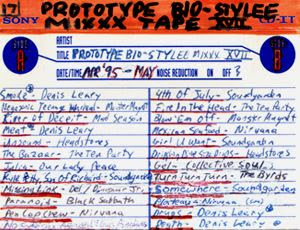 17
PROTOTYPE BIO-STYLEE
MIXXX TAPE XVII
SONY
CD-IT
ARTIST
TITLE PROTOTYPE BIO-STYLEE MIXXX XVII
DATE/TIME APR '95 - MAY NOISE REDUCTION ON OFF ?
Smoke - Denis Leary
Negasonic Teenage Warhead - Monster Magnet
River of Deceit - Mad Season
Meat - Denis Leary
Unsound - Headstones
The Bazaar - The Tea Party
Kill Ritchy Son Of Richard - Soundgarden
Missing Link - Del / Dinosaur Jr.
Paranoid - Black Sabbath
Pen Cap Chew - Nirvana
4th Of July - Soundgarden
Fire In the Head - The Tea Party
Blow 'Em Off - Monster Magnet
Mexican Seafood - Nirvana
Girl U Want - Soundgarden
Headstones
Gel - Collective Soul
Turn Turn Turn - The Byrds
Somewhere - Soundgarden
Nirvana
Drugs - Denis Leary
Death - Denis Leary